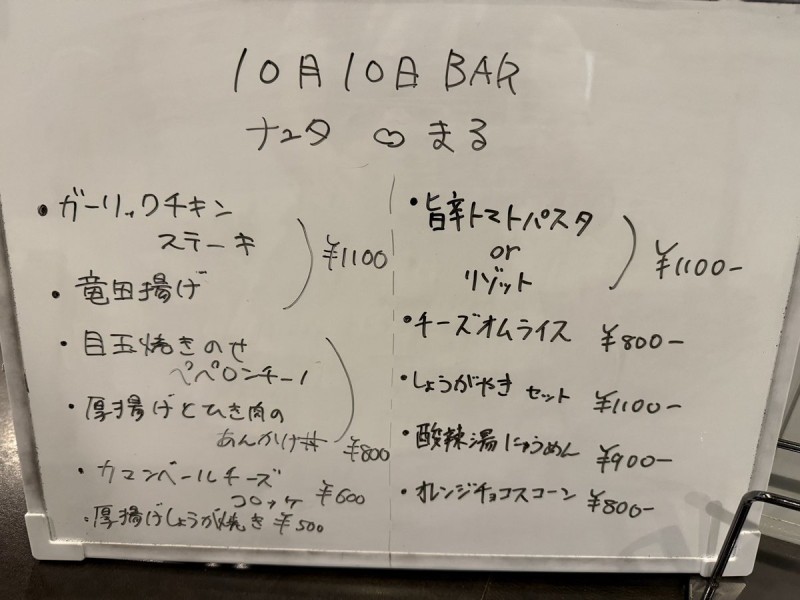 10月10日 BAR
ナユタ ♡ まる
・ガーリックチキン
ステーキ
・竜田揚げ
¥1100
・目玉焼きのせ
ペペロンチーノ
・厚揚げとひき肉の
あんかけ丼
¥800
・カマンベールチーズ
コロッケ ¥600
・厚揚げしょうが焼き ¥500
・旨辛トマトパスタ
or
リゾット
¥1100-
・チーズオムライス ¥800-
・しょうがやき セット ¥1100-
・酸辣湯にゅうめん ¥900-
・オレンジチョコスコーン ¥800-